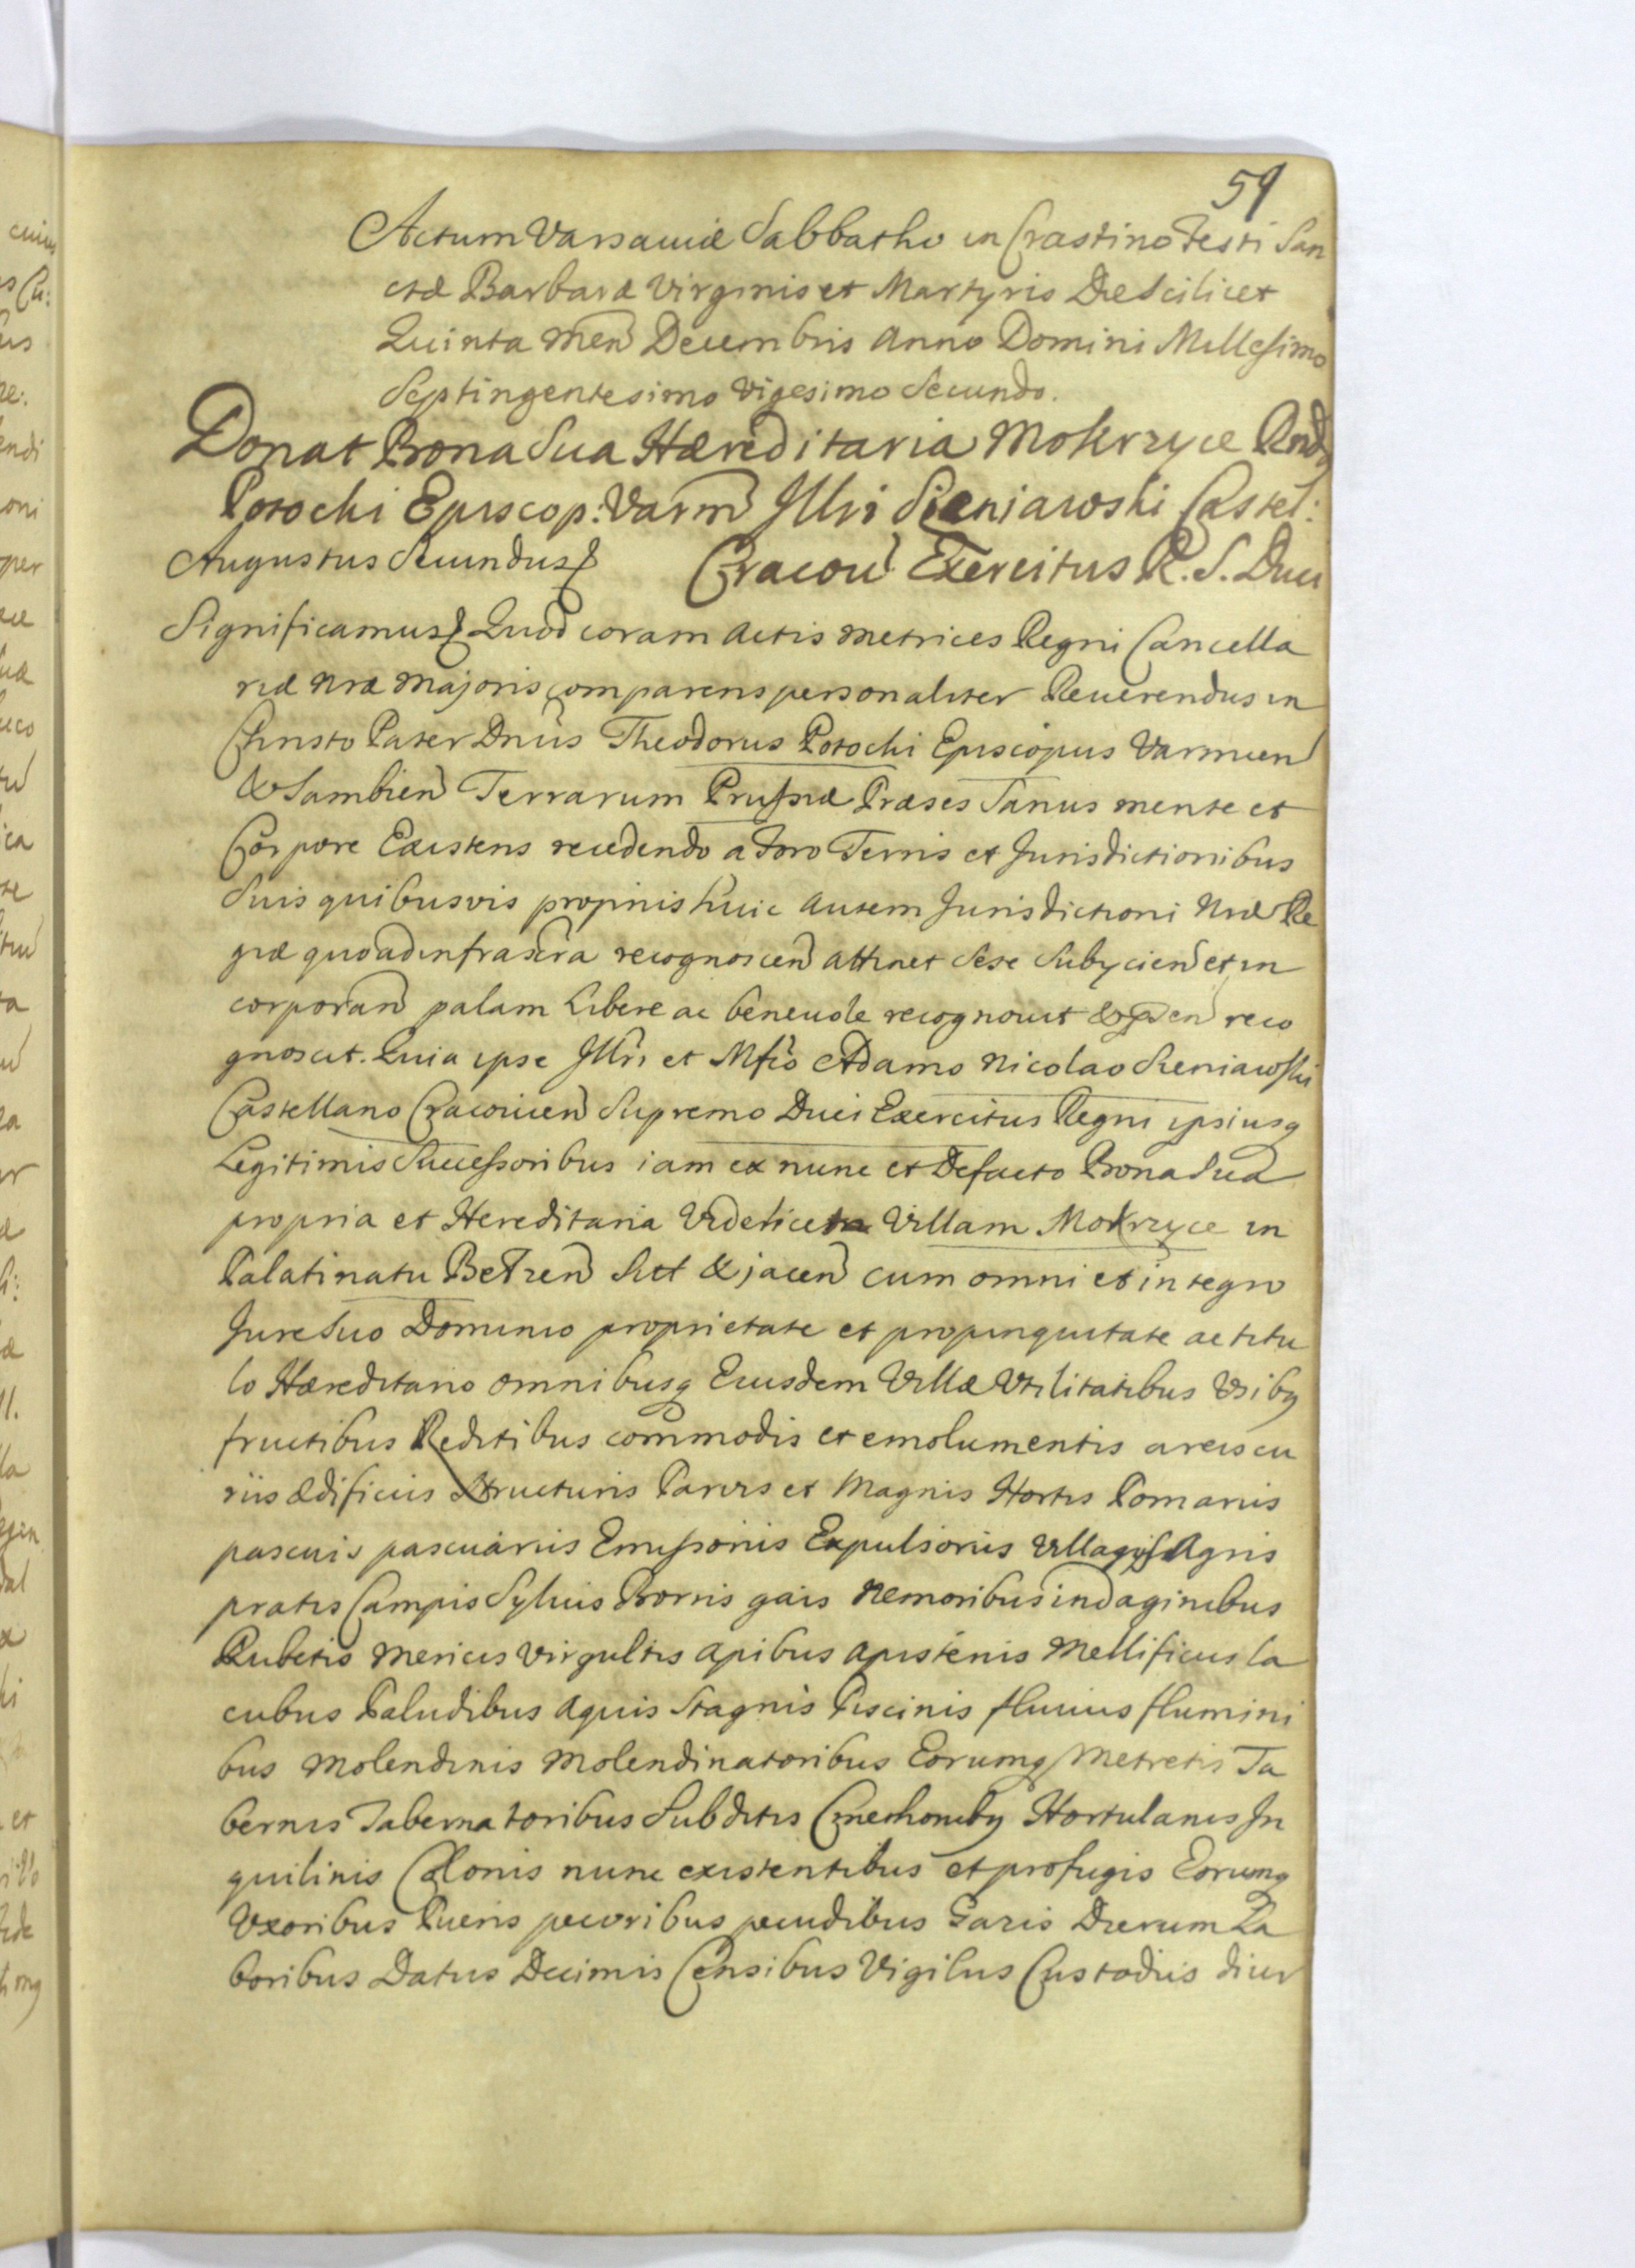 59
Actum Varsaviæ Sabbatho in Crastino Festi San
ctæ Barbaræ Virginis et Martyris Die Scilicet
Quinta Men Decembris Anno Domini Millesimo
Septingentesimo Vigesimo Secundo.
Donat Bona Sua Hæreditaria Mokrzyce Rnds
Potocki Episcop: Varm Illri Sieniawski Castel:
Augustus Secundus Cracov Exercitus R. S. Duci
Significamus Quod coram Actis Metrices Regni Cancella
riæ Nræ Majoris comparens personaliter Reverendus in
Christo Pater Dnus Theodorus Potocki Episcopus Varmien
& Sambien Terrarum Prussiæ Præses Sanus mente et
Corpore Existens recedendo a Foro Terris et Jurisdictionibus
Suis quibusvis proprijs huic autem Jurisdictioni Nræ Re
giæ quoad infrascra recognoscen attinet Sese Subijcien et in
corporan palam Libere ac benevole recognovit & pden reco
gnoscit. Quia ipse Illri et Mfco Adamo Nicolao Sieniawski
Castellano Cracovien Supremo Duci Exercitus Regni ipsiusq
Legitimis Successoribus iam ex nunc et Defacto Bona Sua
propria et Hereditaria Videlicet Villam Mokrzyce in
Palatinatu Bełzen Sit & jacen cum omni et integro
Jure Suo Dominio proprietate et propinquitate ac titu
lo Hæreditario omnibusq Eiusdem Villæ Vtilitatibus Vsibq
fructibus Reditibus commodis et emolumentis areis cu
riis ædificiis Structuris Parvis et Magnis Hortis Pomariis
pascuis pascuariis Emissoriis Expulsoriis Villagiis Agris
pratis Campis Sylvis Borris gais Nemoribus indaginibus
Rubetis Mericis Virgultis Apibus Apisteriis Mellificiis la
cubus Paludibus Aquis Stagnis Piscinis fluviis flumini
bus Molendinis Molendinatoribus Eorumq Metretis Ta
bernis Tabernatoribus Subditis Cmethonibq Hortulanis In
quilinis Colonis nunc existentibus et profugis Eorumq
Vxoribus Pueris pecoribus pecudibus Gazis Dierum La
boribus Datiis Decimis Censibus Vigiliis Custodiis diur